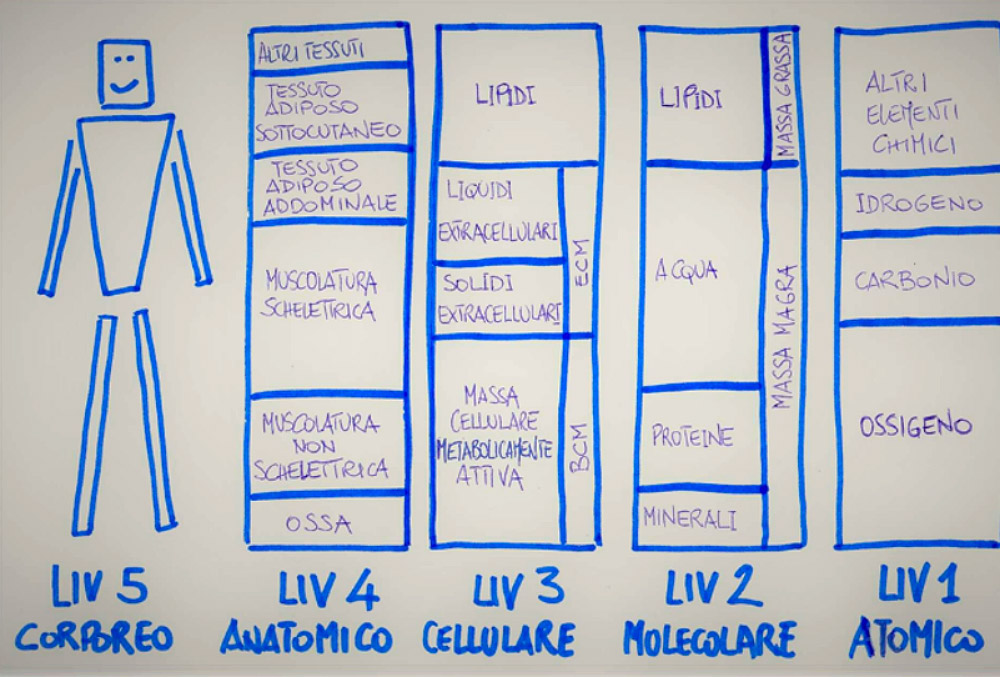 ALTRI TESSUTI
TESSUTO
ADIPOSO
SOTTOCUTANEO
TESSUTO
ADIPOSO
ADDOMINALE
MUSCOLATURA
SCHELETTRICA
MUSCOLATURA
NON
SCHELETTRICA
OSSA
LIPIDI
LIQUIDI
EXTRACELLULARI
SOLIDI
EXTRACELLULARI
ECM
MASSA
CELLULARE
METABOLICAMENTE
ATTIVA
BCM
LIPIDI
MASSA GRASSA
ACQUA
PROTEINE
MINERALI
MASSA MAGRA
ALTRI
ELEMENTI
CHIMICI
IDROGENO
CARBONIO
OSSIGENO
LIV 5
CORPOREO
LIV 4
ANATOMICO
LIV 3
CELLULARE
LIV 2
MOLECOLARE
LIV 1
ATOMICO